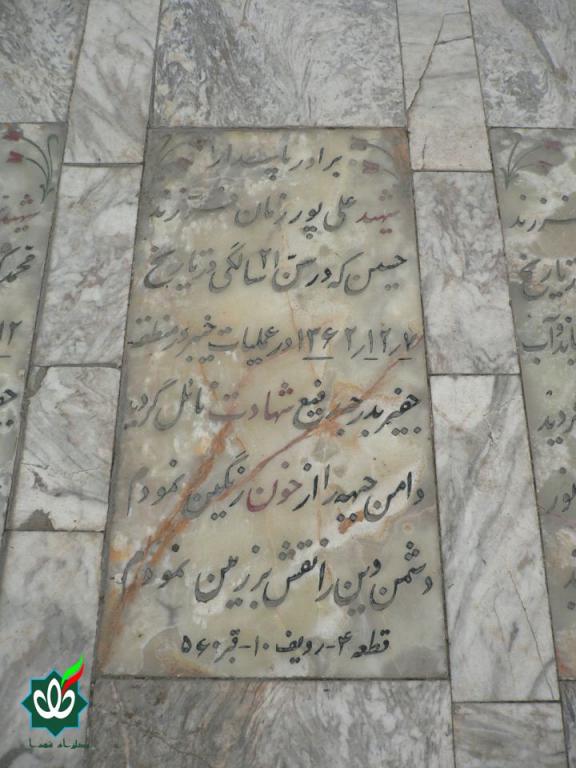 برادر پاسدار
شهید علی پورزمان فرزند
حسین که در سن ۲۱ سالگی در تاریخ
۱۳۶۲٫۱۲٫۷ در عملیات خیبر در منطقه
جفیر بدرجه رفیع شهادت نائل گردید
دامن جبهه را از خون رنگین نمودم
دشمن دین را نقش بر زمین نمودم
قطعه ۴-ردیف ۱۰-قبر ۵۶۰
شهید
فرزند
در تاریخ